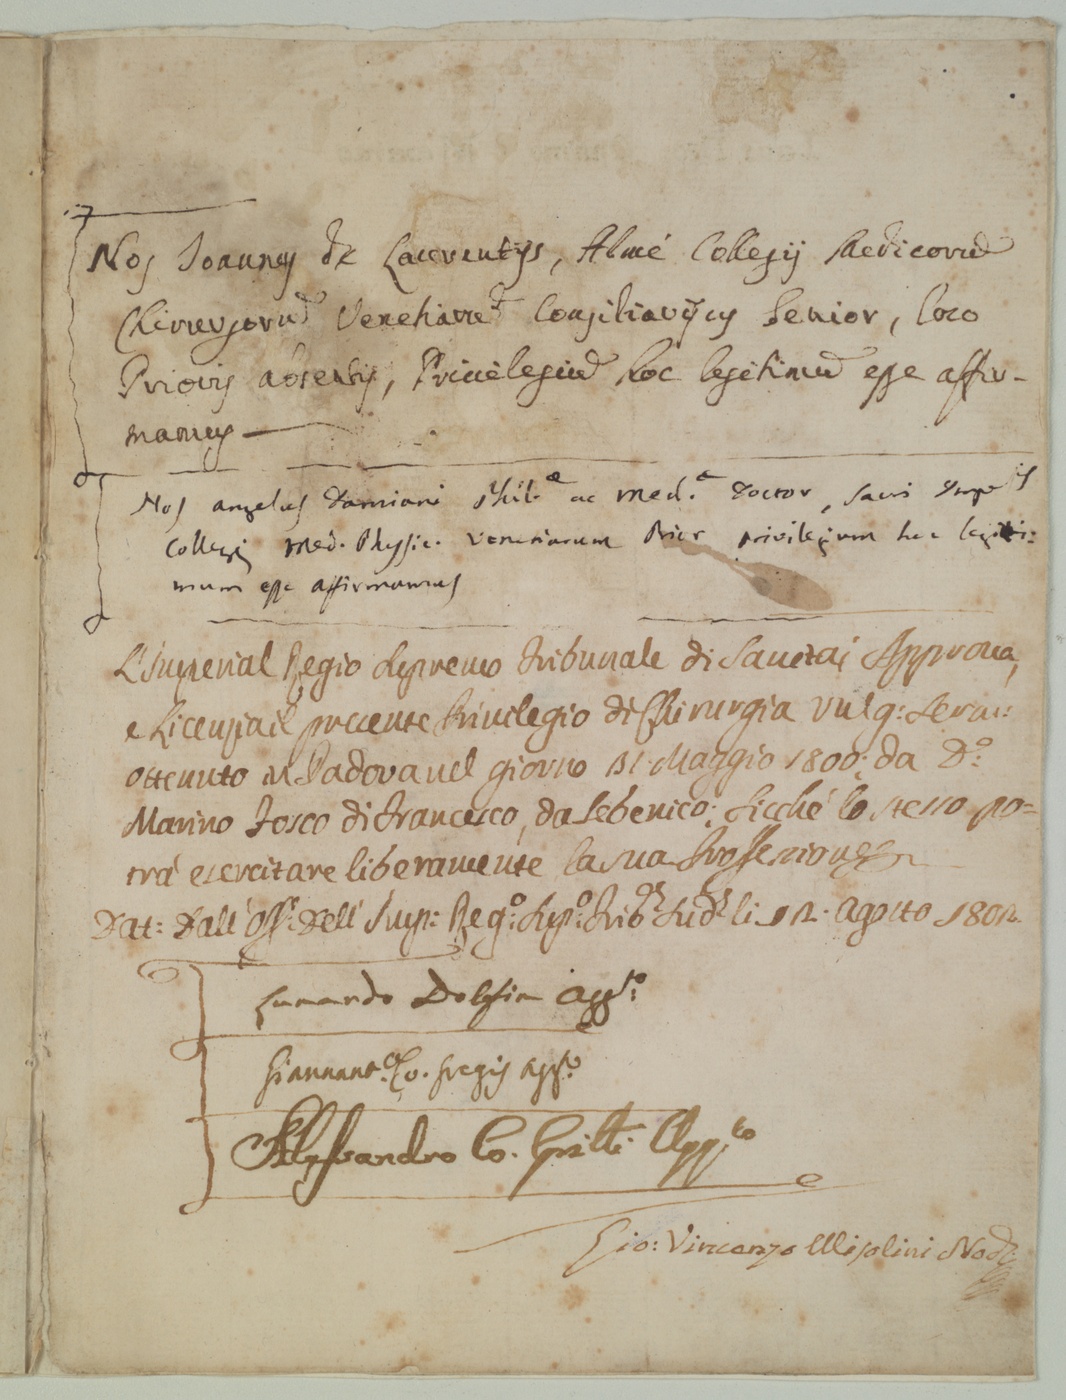 Nos Joannes de Laurentijs, Almé Collegij Medicorũ
Chirurgorũ Venetiarũ Consiliarijus Senior, loco
Prioris absentis, Privilegiũ hoc legitimũ esse affir-
mamus
Nos angelus Damiani Phil.æ ac Med.æ Doctor, Sacri
Collegij Med. Physic. Venetiarum Prior privilegium hoc legiti:
mum esse affirmamus
L'Imperial Regio Supremo Tribunale di Sanità, Approva,
e Licenzia il presente Privilegio di Chirurgia Vulg: Serm:
ottenuto in Padova nel giorno 31. Maggio 1800: da D:º
Marino Tosco di Francesco, da Sebenico; sicché lo stesso po=
trà esercitare liberamente la sua Proffessione
Dat: Dall' Off:º Dell' Imp: Reg:º Sup:º Trib: li 12. agosto 1802.
Lunardo Dolfin Agg.to
Giannant.º Co. Fregis agg.to
Alessandro Co. Gritti Agg.to
Gio: Vincenzo Misolini Nod: